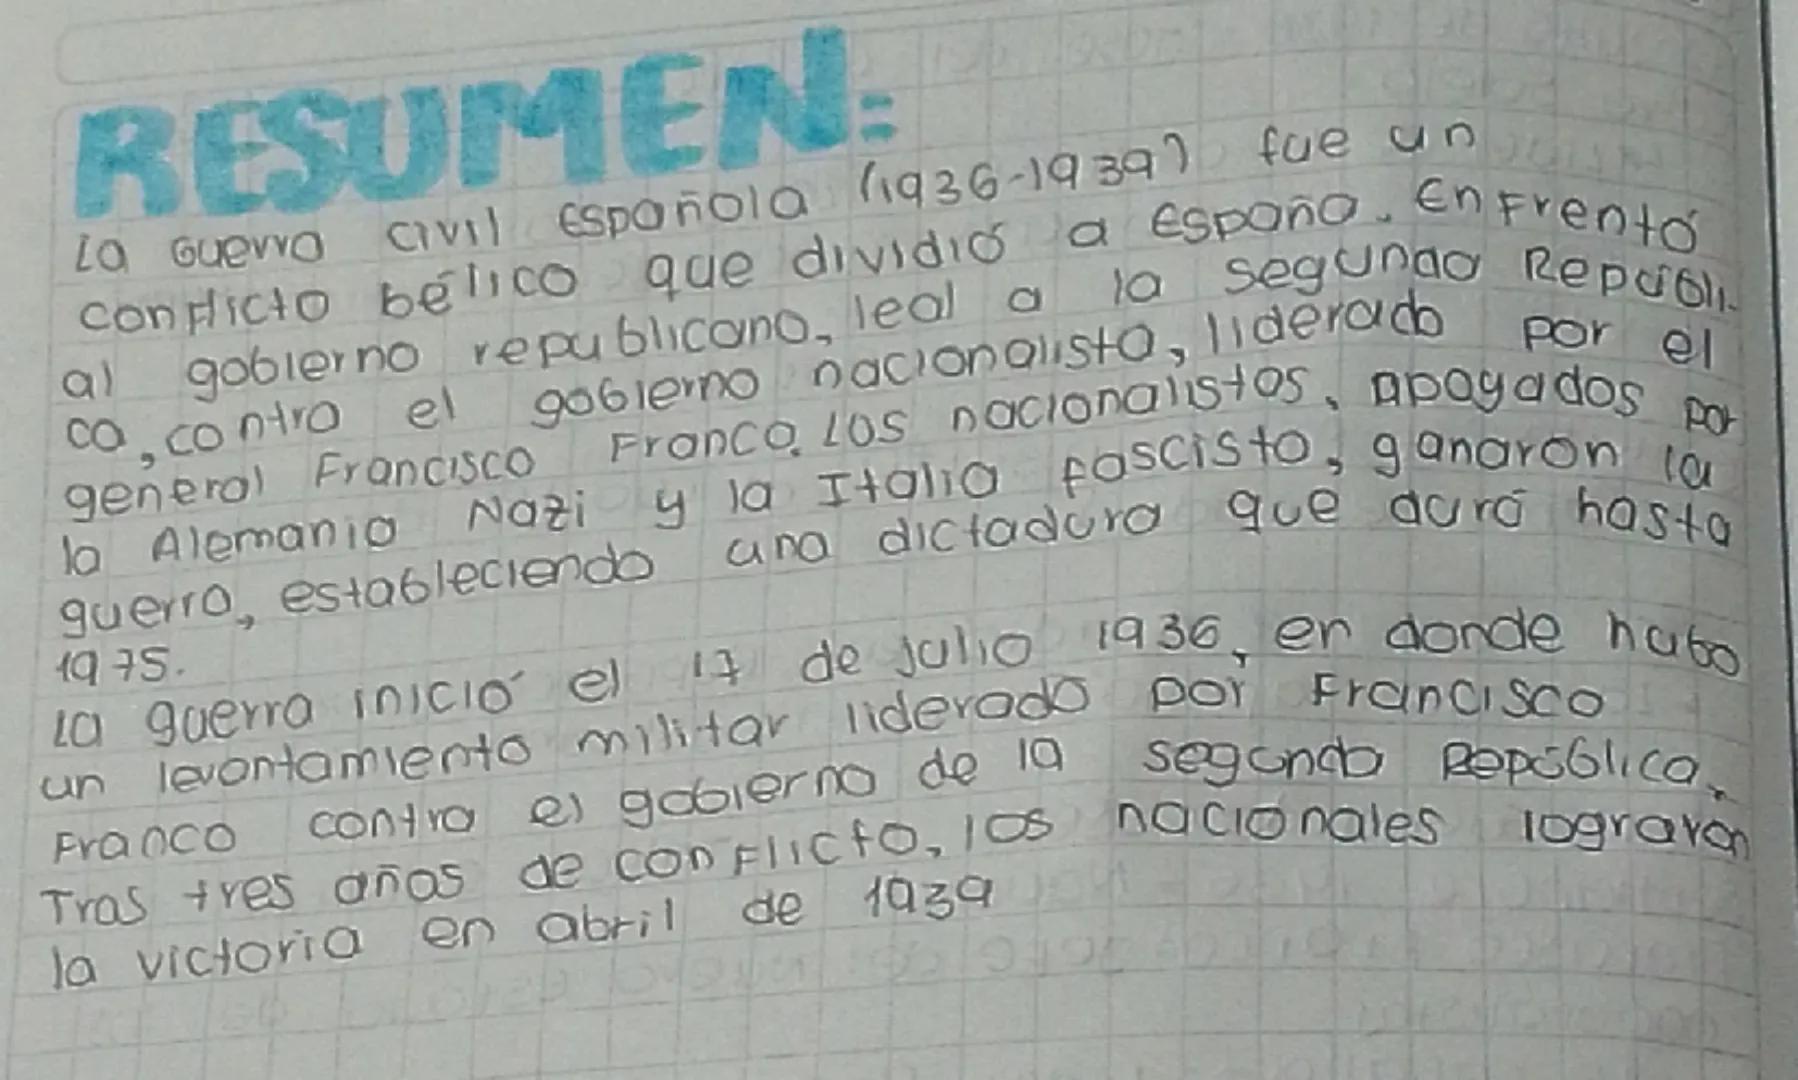 RESUMEN:
La Guerra civil Española (1936-1939) fue un
conflicto bélico que dividió a España. Enfrentó
al gobierno republicano, leal a la segunda Repúbli-
ca, contra el gobierno nacionalista, liderado por el
general Francisco Franco. Los nacionalistas, apoyados por
la Alemania Nazi y la Italia fascista, ganaron la
guerra, estableciendo una dictadura que duró hasta
1975.
La guerra inició el 17 de julio 1936, en donde hubo
un levantamiento militar liderado por Francisco
Franco contra el gobierno de la segunda República,
Tras tres años de conflicto, los nacionales lograron
la victoria en abril de 1939